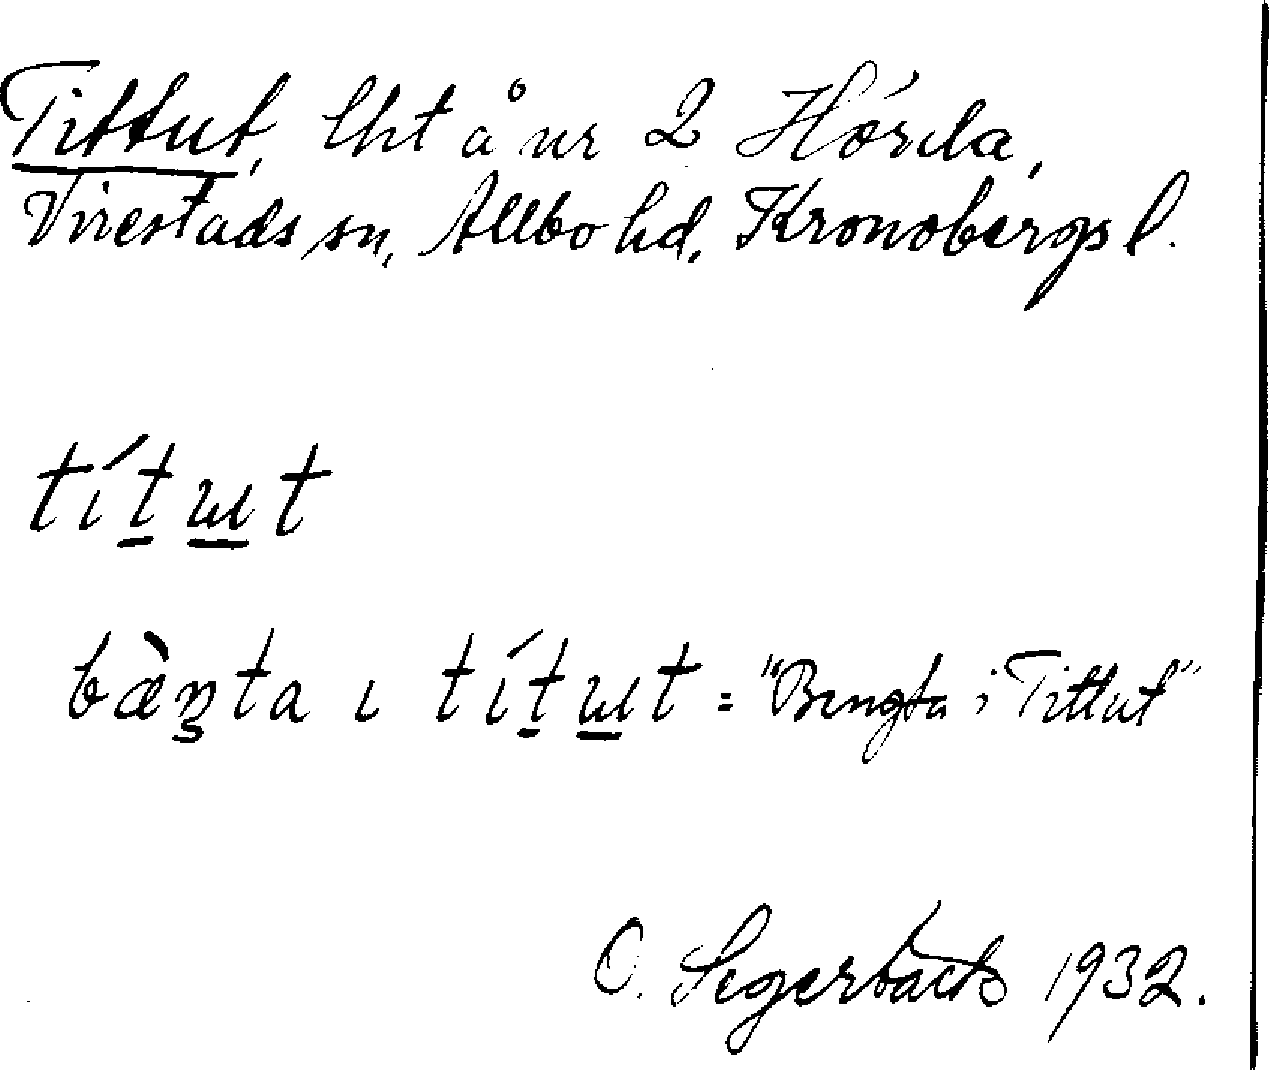 Tittut, lht å nr 2 Hörda,
Virestads sn, Allbo hd. Kronobergs l.
tít̲ɯ̲t
bæ̀ŋta ı tít̲ɯ̲t = "Bengta i Tittut"
O. 1932.